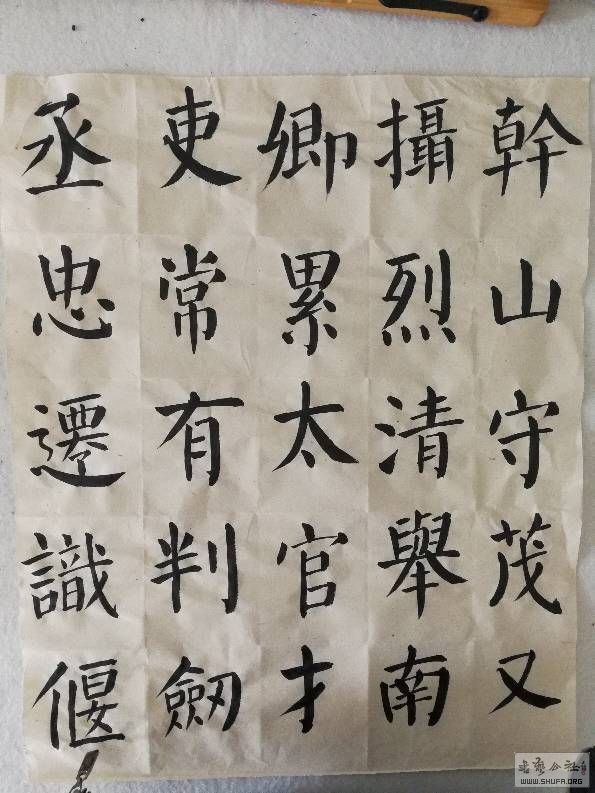 幹山守茂又
攝烈清舉南
卿累太官才
吏常有判劒
丞忠遷識偃
书艺公社
WWW.SHUFA.ORG